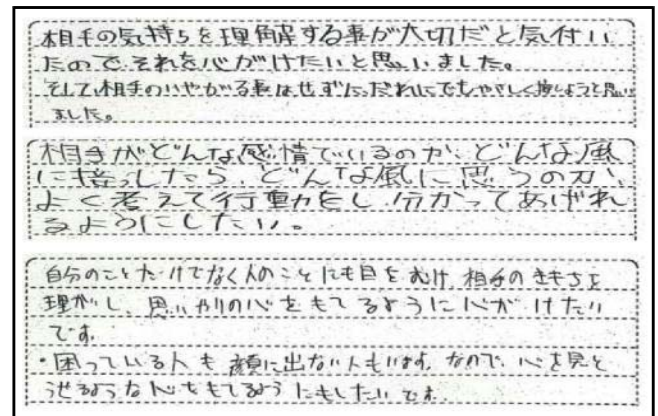 相手の気持ちを理解する事が大切だと気付い
たので、それを心がけたいと思いました。
そして、相手のいやがる事はせずに、だれにでもやさしく接しようと思い
ました。
相手がどんな感情でいるのか、どんな風
に接したら、どんな風に思うのか、
よく考えて行動をし、分かってあげれ
るようにしたい。
自分のことだけでなく人のことにも目をむけ、相手のきもちを
理かいし、思いやりの心をもてるように心がけたい
です。
・困っている人も顔に出ない人もいます。なので、心を見と
うせるような心をもてるようにもしたいです。